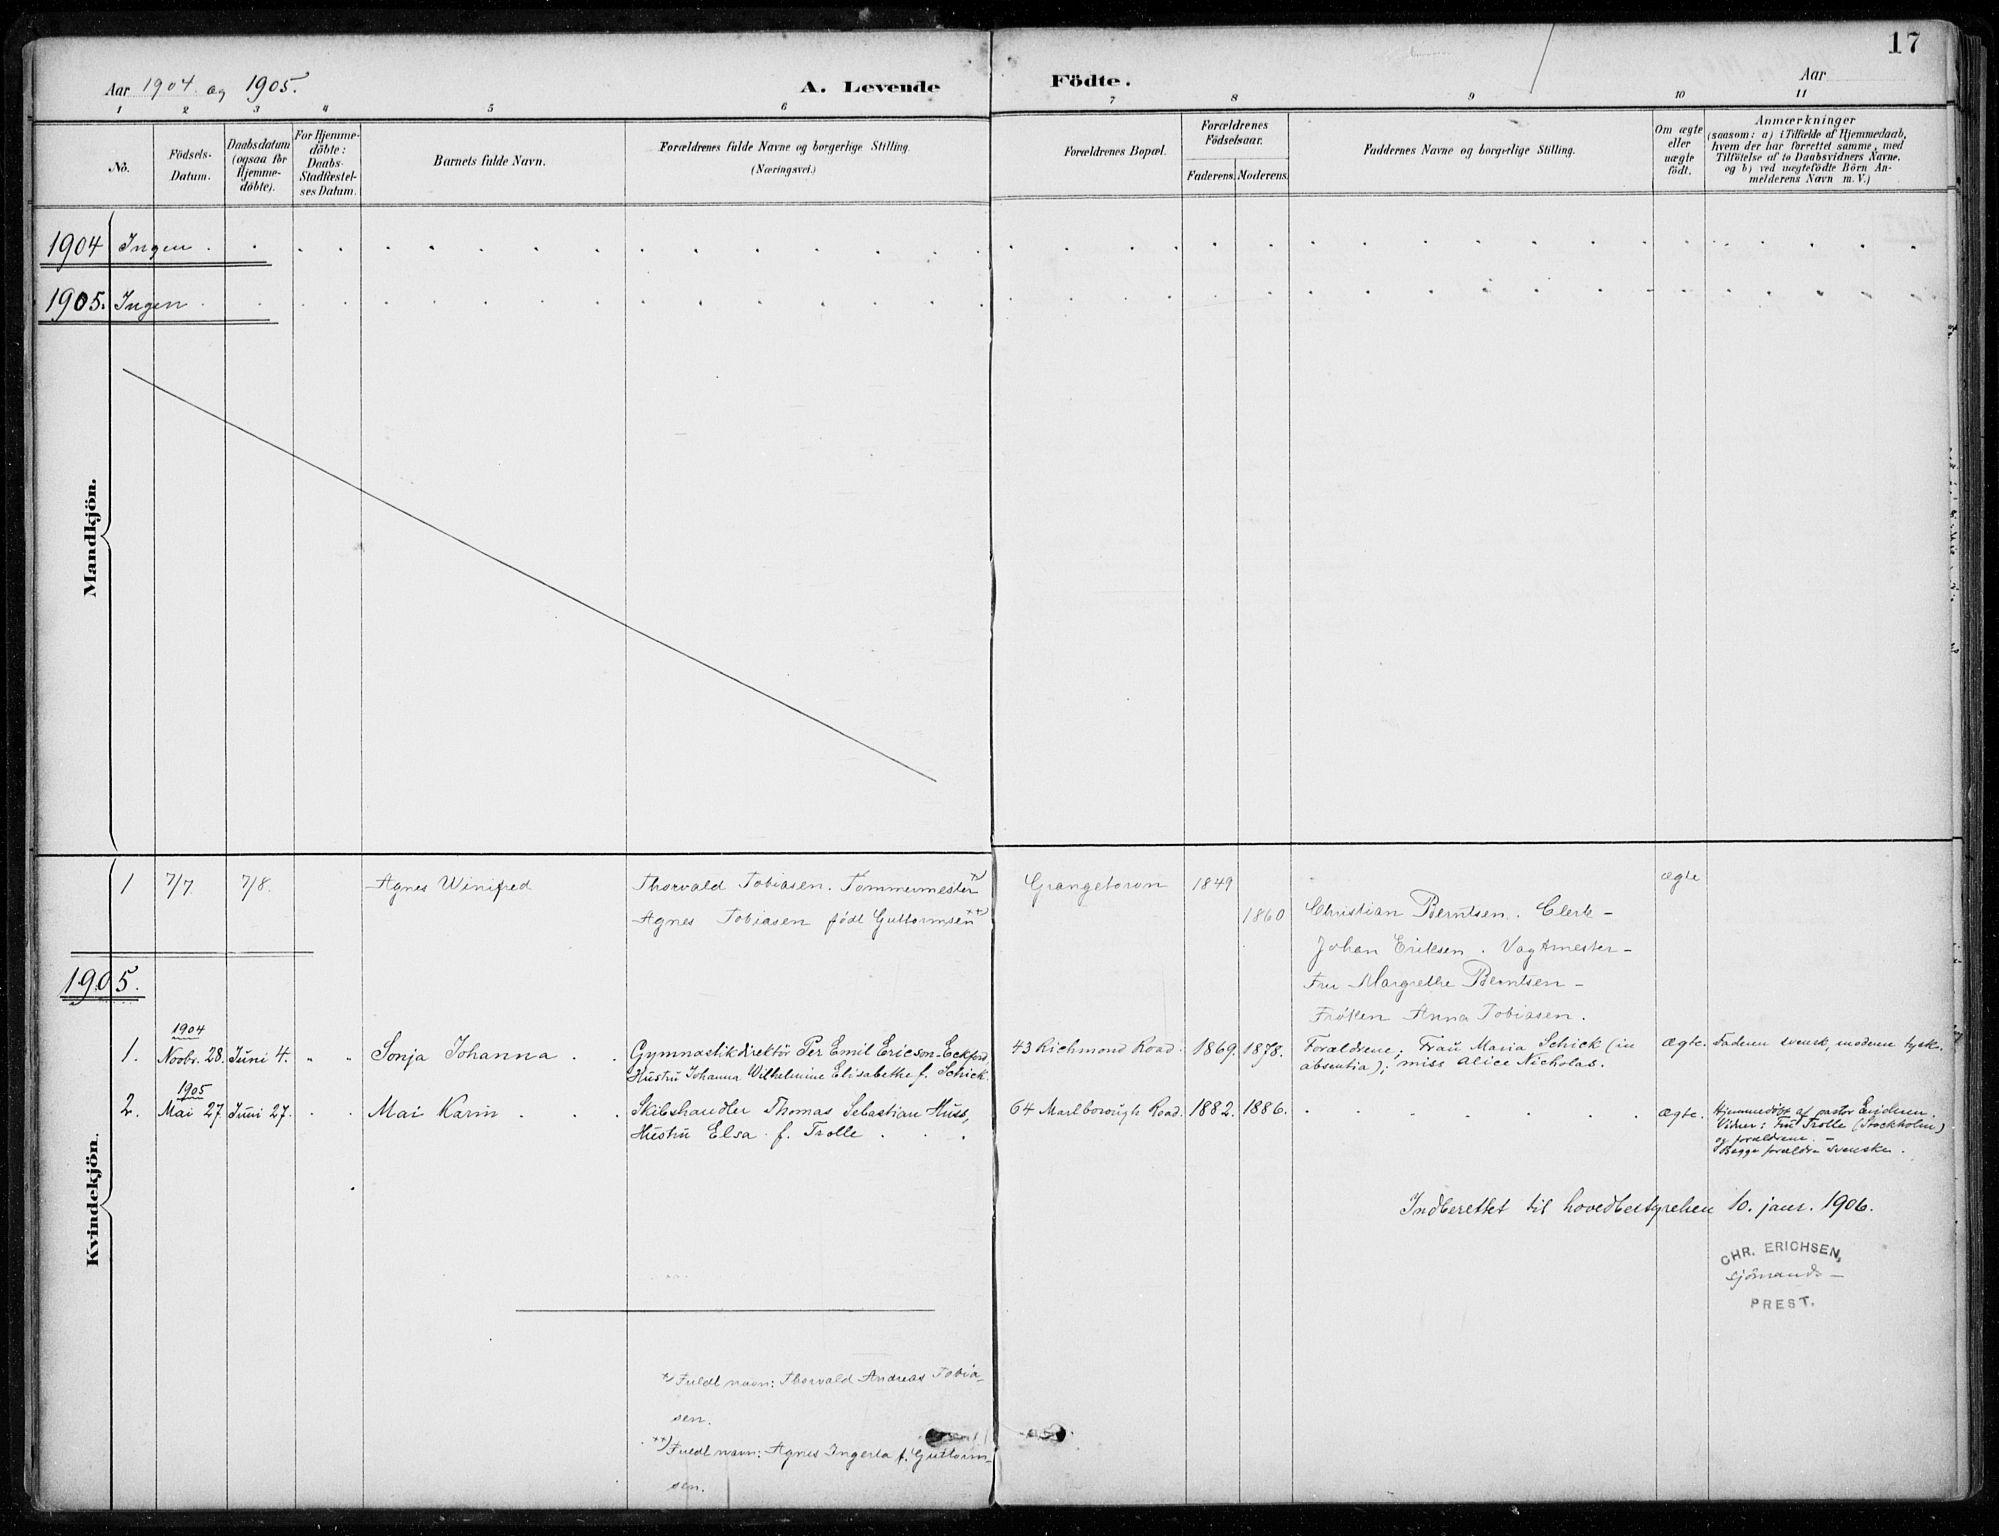 17
Aar 1904 og 1905.
A. Levende Födte.
Aar
1 2 3 4 5 6 7 8 9 10 11
No.
Födsels-
Datum.
Daabsdatum
(ogsaa for
Hjemme-
döbte).
For Hjemme-
döbte:
Daabs-
Stadfæstel-
ses Datum.
Barnets fulde Navn.
Forældrenes fulde Navne og borgerlige Stilling.
(Næringsvei.)
Forældrenes Bopæl.
Forældrenes
Födselsaar.
Faderens. Moderens.
Faddernes Navne og borgerlige Stilling.
Om ægte
eller
uægte
födt.
Anmærkninger
(saasom: a) i Tilfælde af Hjemmedaab,
hvem der har forrettet samme, med
Tilföielse af to Daabsvidners Navne,
og b) ved uægtefödte Börn An-
melderens Navn m. V.)
1904 Ingen
1905. Ingen
Mandkjön.
1 7/7. 7/8. Agnes Winifred Thorvald Tobiasen. Tømmermester *) Grangetown 1849 ægte
Agnes Tobiasen født Guttormsen **) 1860 Christian Berntsen. Clerk –
Johan Eriksen. Vagtmester –
1905. Fru Margrethe Berntsen –
Frøken Anna Tobiasen.
1904
1. Novbr. 28. Juni 4. " " Sonja Johanna . . Gymnastikdirektör Per Emil Ericson-Eckford 43 Richmond Road. 1869. 1878. Forældrene; Frau Maria Schick (in ægte. Faderen svensk, moderen tysk.
Hustru Johanna Wilhelmine Elisabethe f. Schick. absentia); miss Alice Nicholas.
1905
2. Mai 27 Juni 27. Mai Karin . . . Skibshandler Thomas Sebastian Huss, 64 Marlborough Road. 1882. 1886. ægte. Hjemmedøbt af pastor Erichsen.
Hustru Elsa f. Trolle . . . Vidner: Fru Trolle (Stockholm)
og forældrene. –
Begge forældre svenske.
Kvindekjön.
Indberettet til hovedbestyrelsen 10. janr. 1906.
CHR. ERICHSEN,
sjömands–
PREST.
*) Fuldt navn: Thorvald Andreas Tobia-
sen.
**) Fuldt navn: Agnes f. Guttorm-
sen.